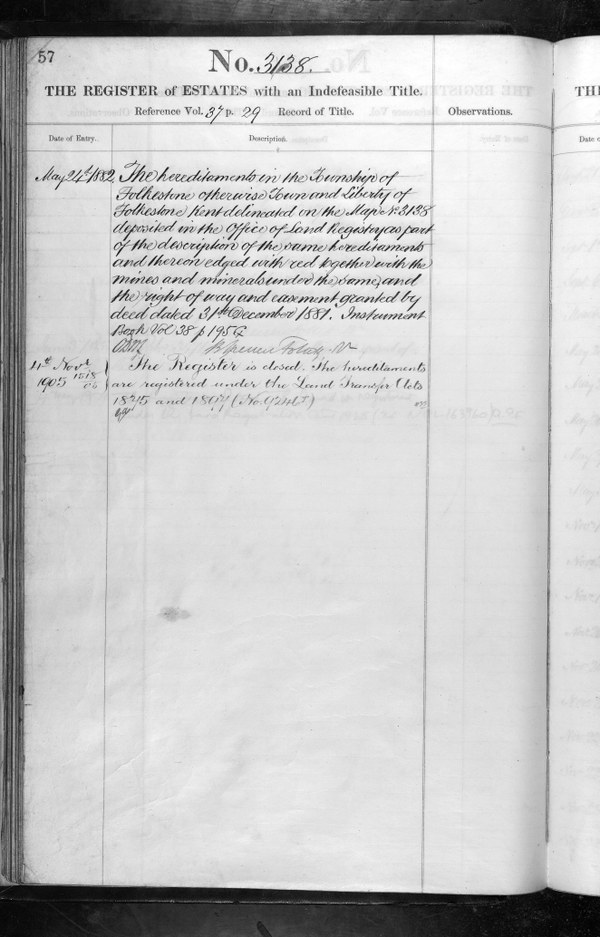 57
No. 3138.
THE REGISTER of ESTATES with an Indefeasible Title.
Reference Vol. 37 p. 29 Record of Title.
Observations.
Date of Entry.
Description.
May 24th 1882 The hereditaments in the Township of
Folkestone otherwise Town and Liberty of
Folkestone Kent delineated on the Map No 3138
deposited in the Office of Land Registry as part
of the description of the same hereditaments
and thereon edged with red together with the
mines and minerals under the same and
the right of way and easement granted by
deed dated 31st December 1881. Instrument
Book Vol 38 p 195
4th Novr 1905
The Register is closed. The hereditaments
are registered under the Land Transfer Acts
1875 and 1897
TH
Date o